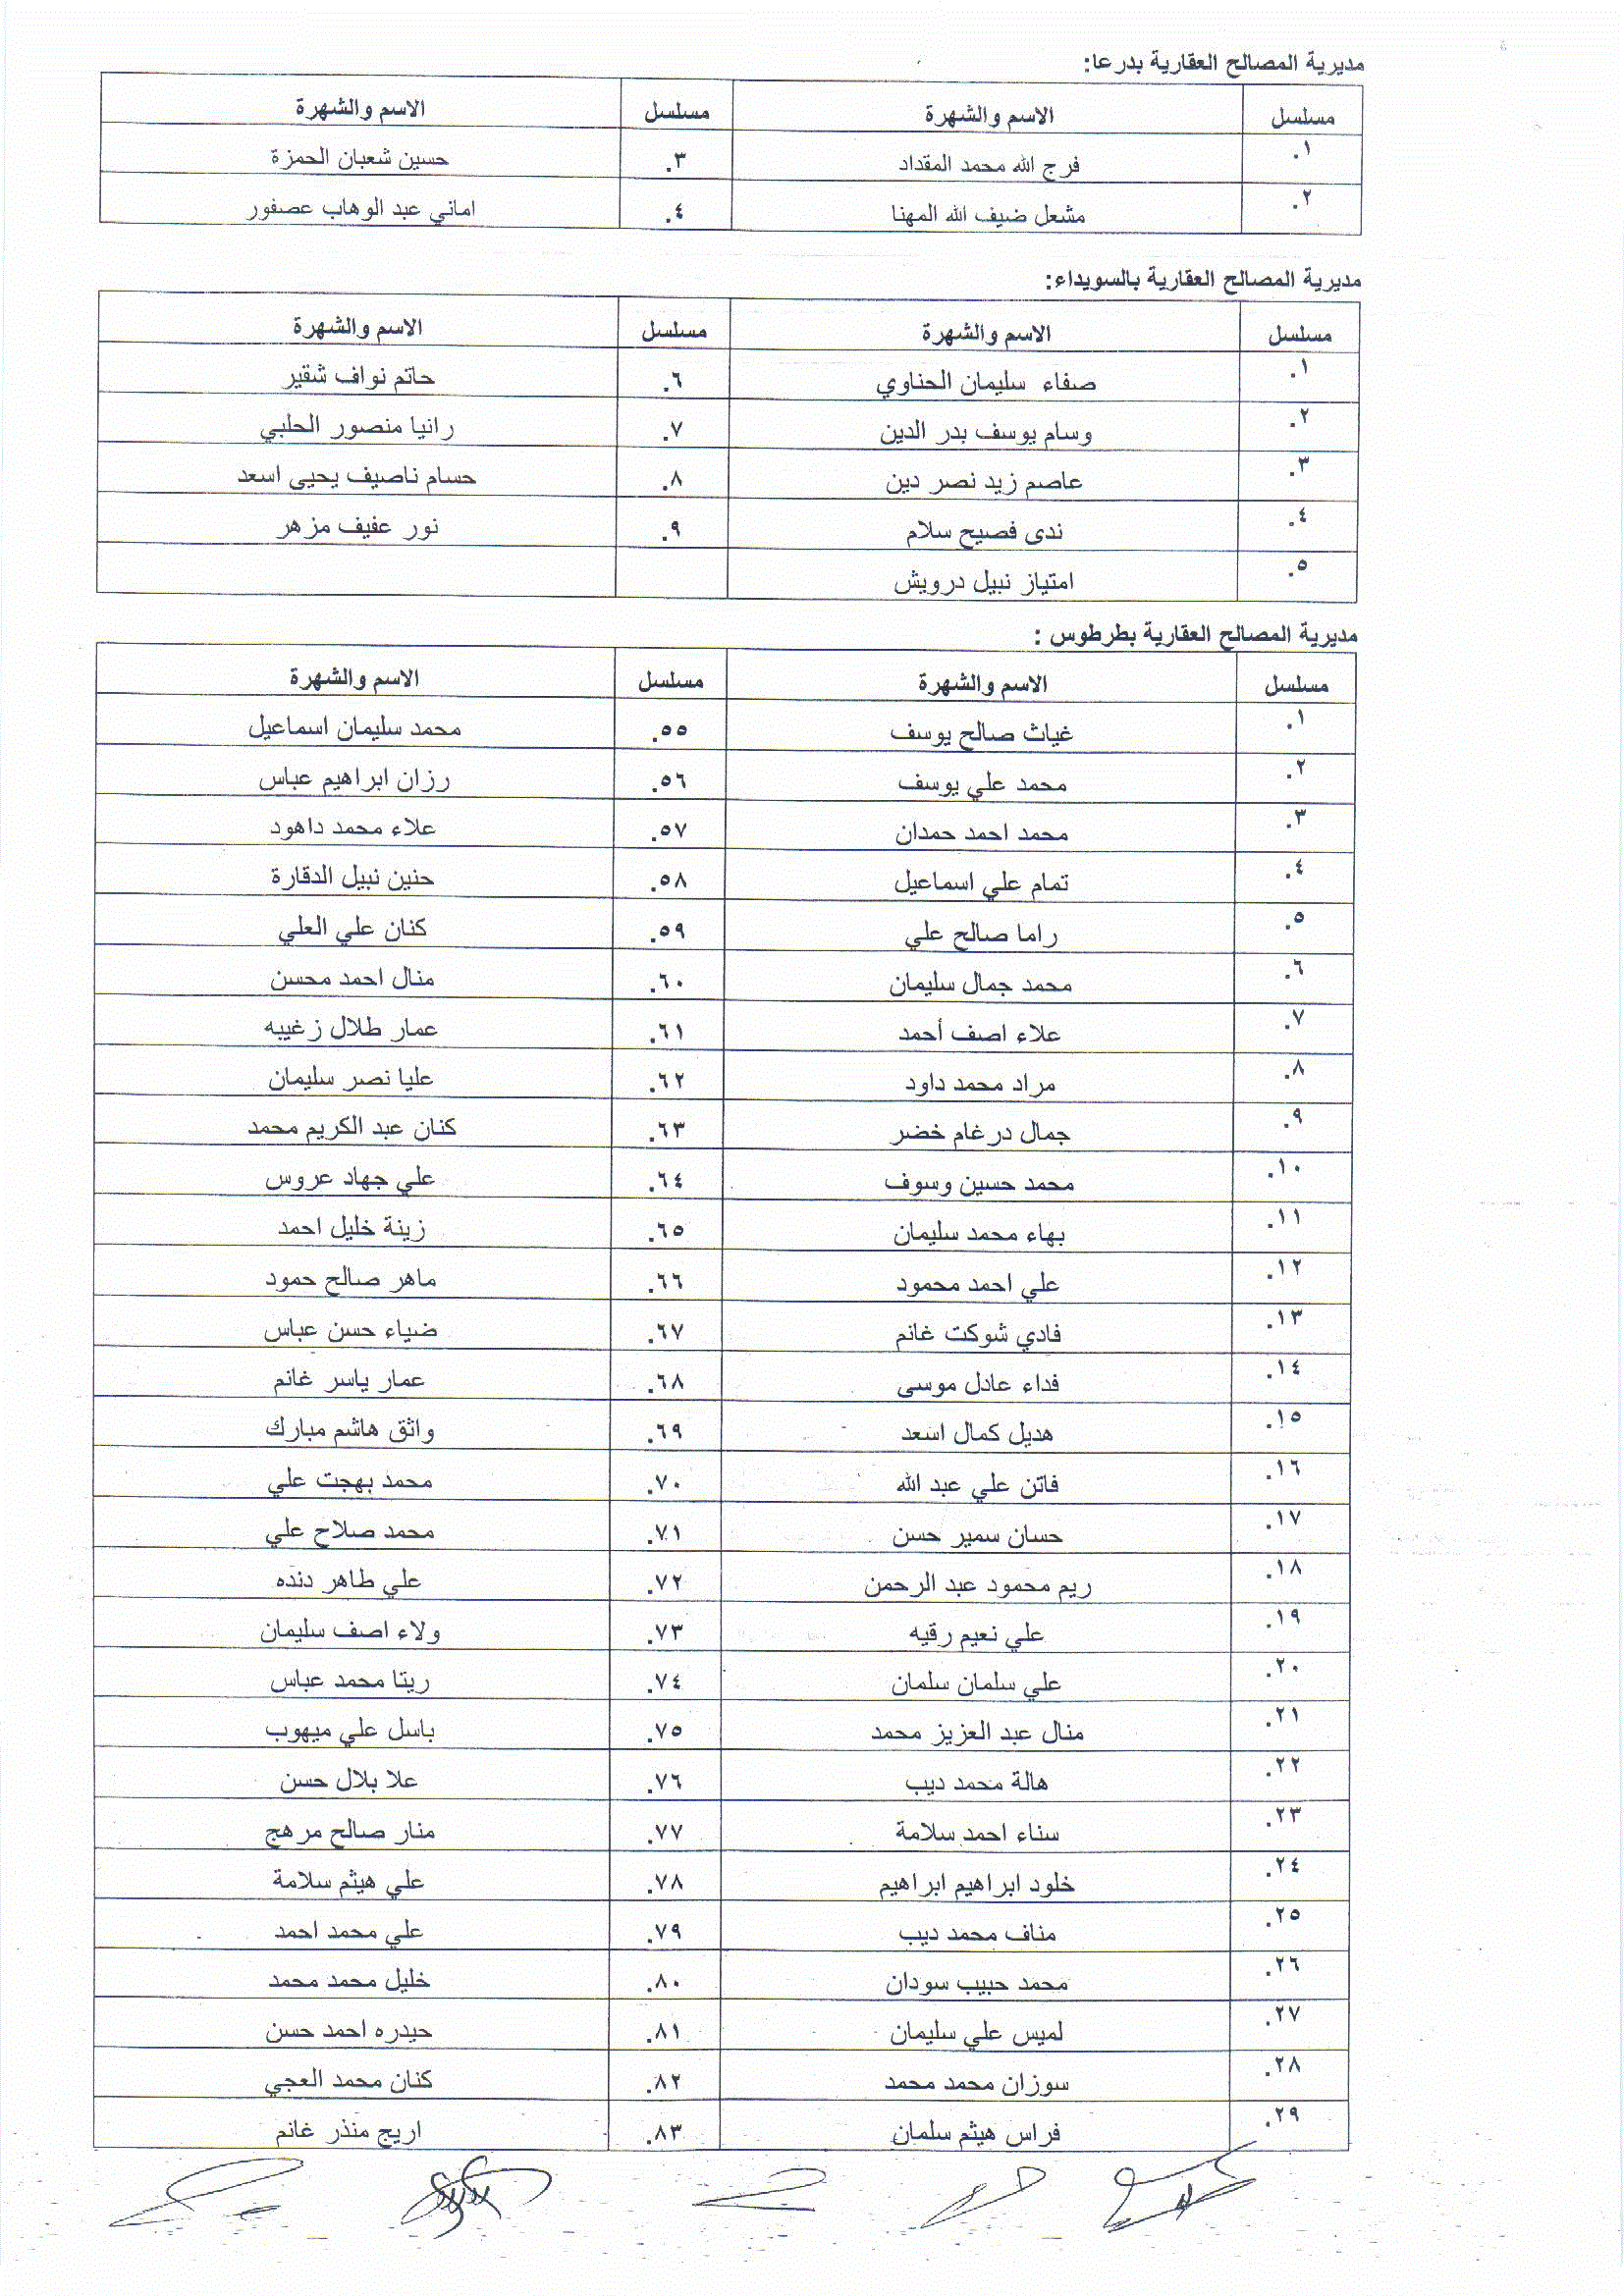 مديرية المصالح العقارية بدرعا:
مسلسل الاسم والشهرة مسلسل الاسم والشهرة
١. فرج الله محمد المقداد ٣. حسين شعبان الحمزة
٢. مشعل ضيف الله المهنا ٤. اماني عبد الوهاب عصفور
مديرية المصالح العقارية بالسويداء:
مسلسل الاسم والشهرة مسلسل الاسم والشهرة
١. صفاء سليمان الحناوي ٦. حاتم نواف شقير
٢. وسام يوسف بدر الدين ٧. رانيا منصور الحلبي
٣. عاصم زيد نصر دين ٨. حسام ناصيف يحيى اسعد
٤. ندى فصيح سلام ٩. نور عفيف مزهر
٥. امتياز نبيل درويش
مديرية المصالح العقارية بطرطوس :
مسلسل الاسم والشهرة مسلسل الاسم والشهرة
١. غياث صالح يوسف ٥٥. محمد سليمان اسماعيل
٢. محمد علي يوسف ٥٦. رزان ابراهيم عباس
٣. محمد احمد حمدان ٥٧. علاء محمد داهود
٤. تمام علي اسماعيل ٥٨. حنين نبيل الدقارة
٥. راما صالح علي ٥٩. كنان علي العلي
٦. محمد جمال سليمان ٦٠. منال احمد محسن
٧. علاء اصف أحمد ٦١. عمار طلال زغيبه
٨. مراد محمد داود ٦٢. عليا نصر سليمان
٩. جمال درغام خضر ٦٣. كنان عبد الكريم محمد
١٠. محمد حسين وسوف ٦٤. علي جهاد عروس
١١. بهاء محمد سليمان ٦٥. زينة خليل احمد
١٢. علي احمد محمود ٦٦. ماهر صالح حمود
١٣. فادي شوكت غانم ٦٧. ضياء حسن عباس
١٤. فداء عادل موسى ٦٨. عمار ياسر غانم
١٥. هديل كمال اسعد ٦٩. واثق هاشم مبارك
١٦. فاتن علي عبد الله ٧٠. محمد بهجت علي
١٧. حسان سمير حسن ٧١. محمد صلاح علي
١٨. ريم محمود عبد الرحمن ٧٢. علي طاهر دنده
١٩. علي نعيم رقيه ٧٣. ولاء اصف سليمان
٢٠. علي سلمان سلمان ٧٤. ريتا محمد عباس
٢١. منال عبد العزيز محمد ٧٥. باسل علي ميهوب
٢٢. هالة محمد ديب ٧٦. علا بلال حسن
٢٣. سناء احمد سلامة ٧٧. منار صالح مرهج
٢٤. خلود ابراهيم ابراهيم ٧٨. علي هيثم سلامة
٢٥. مناف محمد ديب ٧٩. علي محمد احمد
٢٦. محمد حبيب سودان ٨٠. خليل محمد محمد
٢٧. لميس علي سليمان ٨١. حيدره احمد حسن
٢٨. سوزان محمد محمد ٨٢. كنان محمد العجي
٢٩. فراس هيثم سلمان ٨٣. اريج منذر غانم